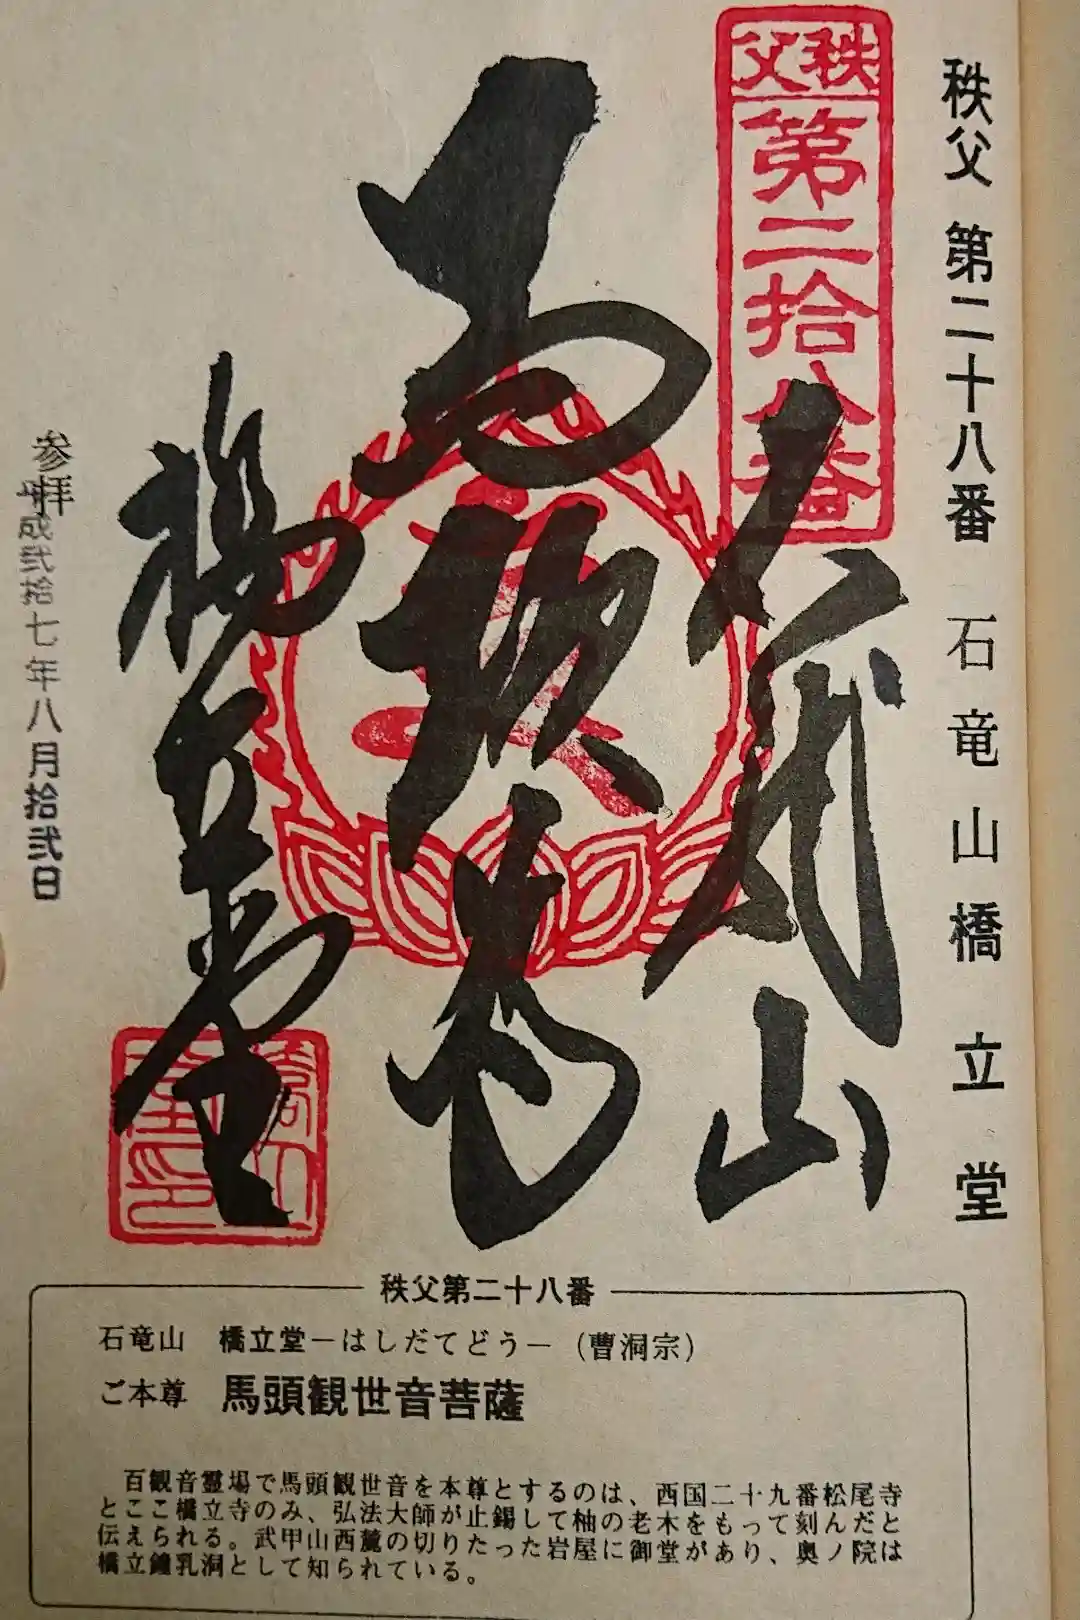 秩父 第二十八番 石竜山橋立堂
秩父
第二拾八番
石竜山
馬頭尊
橋立堂
参拝
平成弐拾七年八月拾弐日
秩父第二十八番
石竜山 橋立堂－はしだてどう－（曹洞宗）
ご本尊 馬頭観世音菩薩
百観音霊場で馬頭観世音を本尊とするのは、西国二十九番松尾寺
とここ橋立寺のみ、弘法大師が止錫して柚の老木をもって刻んだと
伝えられる。武甲山西麓の切りたった岩屋に御堂があり、奥ノ院は
橋立鐘乳洞として知られている。